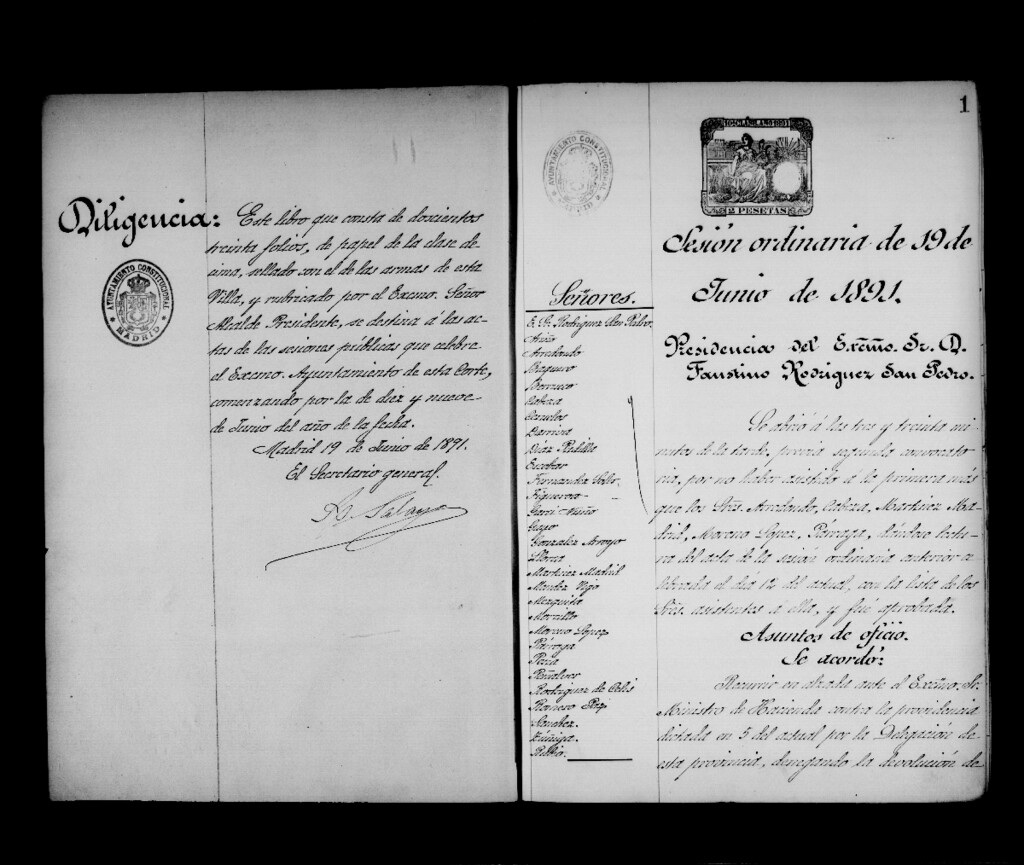 Diligencia:
Este libro que consta de doscientos
treinta folios, de papel de la clase dé
cima, sellado con el de las armas de esta
Villa, y rubricado por el Excmo. Señor
Alcalde Presidente, se destina á las ac-
tas de las sesiones públicas que celebre
el Excmo. Ayuntamiento de esta Corte,
comenzando por la de diez y nueve
de Junio del año de la fecha.
Madrid 19 de Junio de 1891.
El Secretario general.
AYUNTAMIENTO CONSTITUCIONAL
MADRID
1
AYUNTAMIENTO CONSTITUCIONAL
2 PESETAS
Sesión ordinaria de 19 de
Junio de 1891.
Presidencia del Excmo. Sr. D.
Faustino Rodriguez San Pedro.
Señores.
E. Sr. Rodriguez San Pedro.
Arredondo
Baquero
Berruco
Cabeza
Díaz Padilla
Escobar
Figueroa
Gayo
Gonzalez Arroyo
Llorca
Martinez Madrid
Mendez Vigo
Mezquita
Morcillo
Moreno Lopez
Párraga
Peña
Peñalver
Rodriguez de Celis
Romero Paz
Sanchez
Zúñiga
Rubio.
Se abrió á las tres y treinta mi-
nutos de la tarde, previa segunda convocato
ria, por no haber asistido á la primera más
que los Sres. Arredondo, Cabeza, Martinez Ma-
drid, Moreno Lopez, Párraga, dándose lectu-
ra del acta de la sesión ordinaria anterior ce
lebrada el dia 12 del actual, con la lista de los
Sres. asistentes á ella, y fué aprobada.
Asuntos de oficio.
Se acordó:
Recurrir en alzada ante el Excmo. Sr.
Ministro de Hacienda contra la providencia
dictada en 5 del actual por la Delegación de
esta provincia, denegando la devolución de